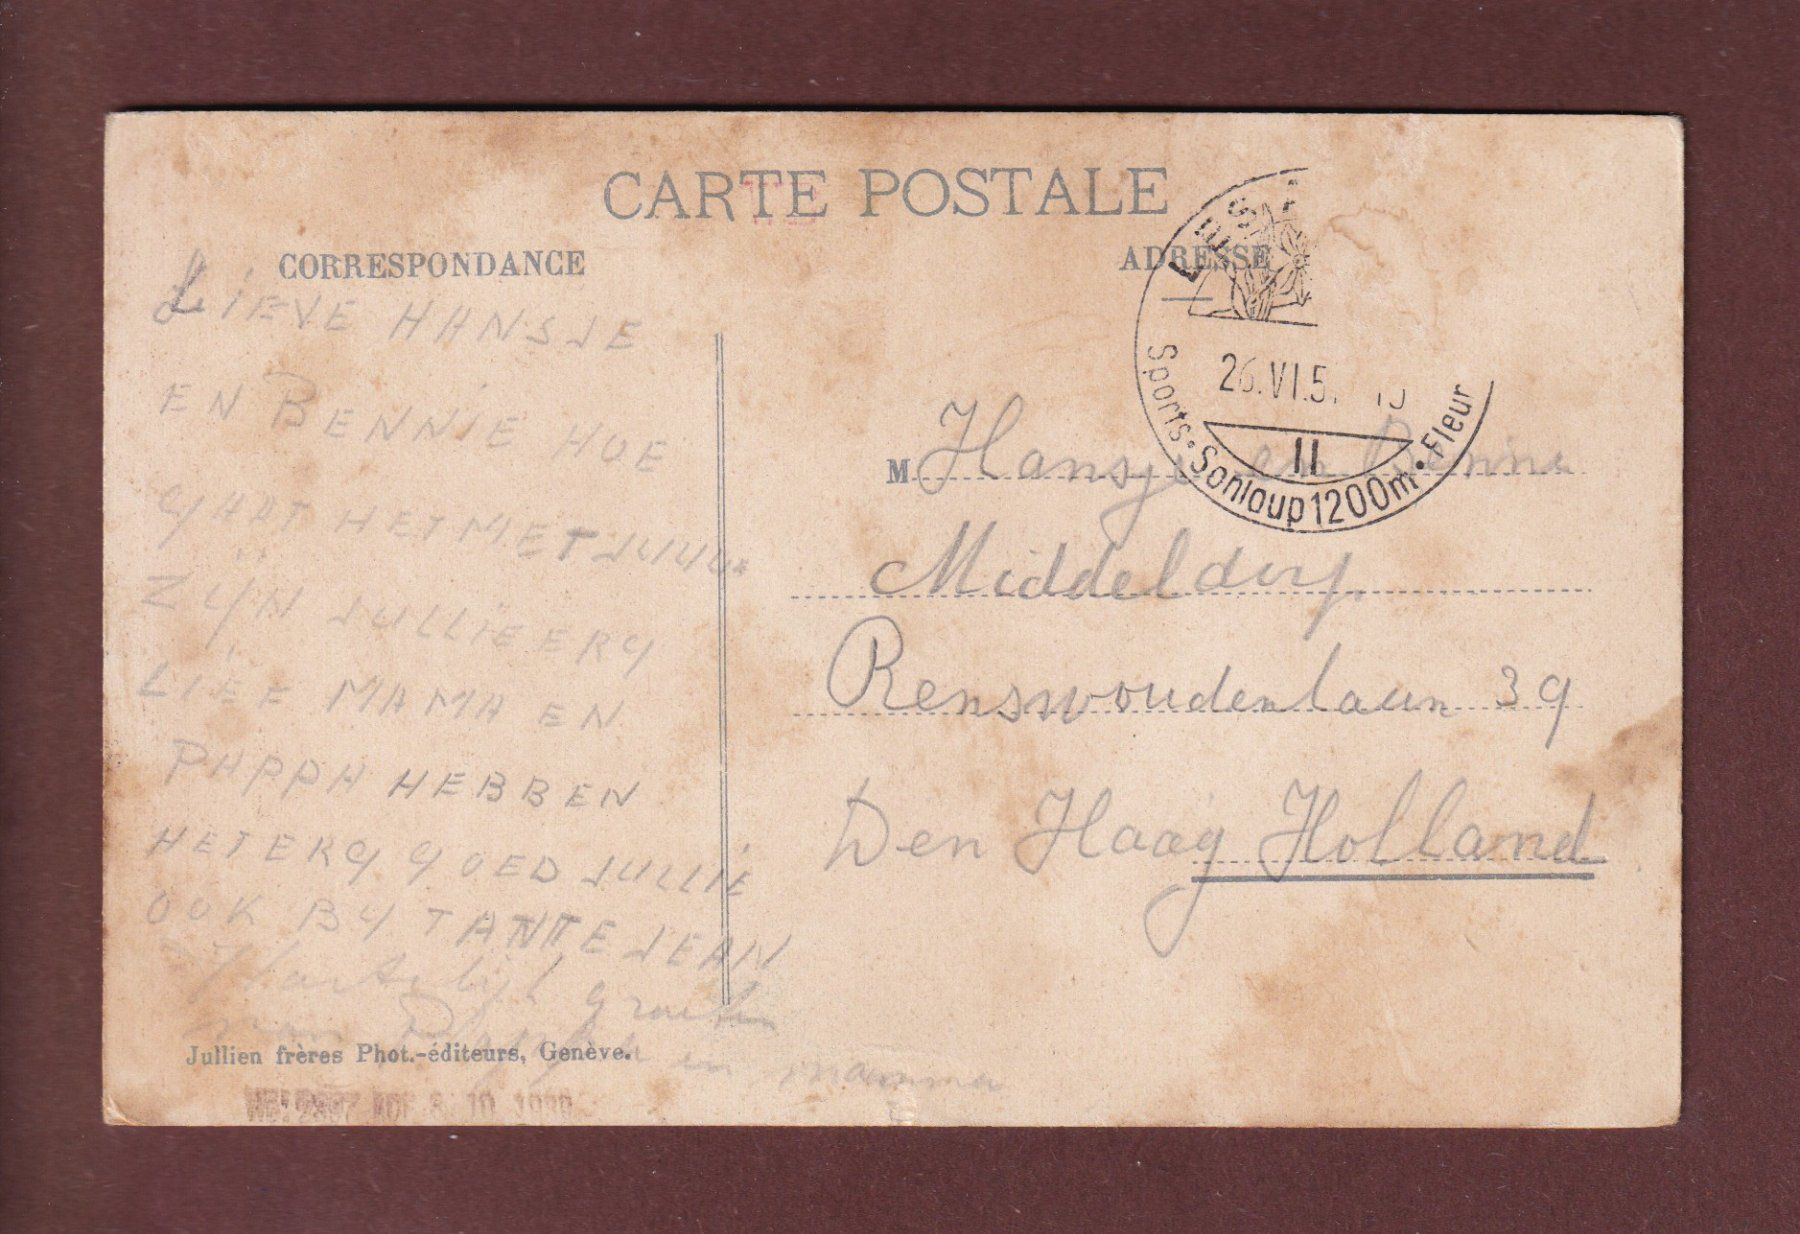 CARTE POSTALE
CORRESPONDANCE
ADRESSE
LIEVE HANSJE
EN BENNIE HOE
GAAT HET MET JULLI
ZIJN JULLIE ERG
LIEF MAMA EN
PAPPA HEBBEN
HET ERG GOED JULLIE
OOK BY TANTE JEAN
Hartelijk groeten
van Pappa en mamma
Jullien frères Phot.-éditeurs, Genève.
LES A
26.VI.5
II
Sports • Sonloup 1200m • Fleur
M Hansje en Bennie
Middeldorp.
Renswoudenlaan 39
Den Haag Holland